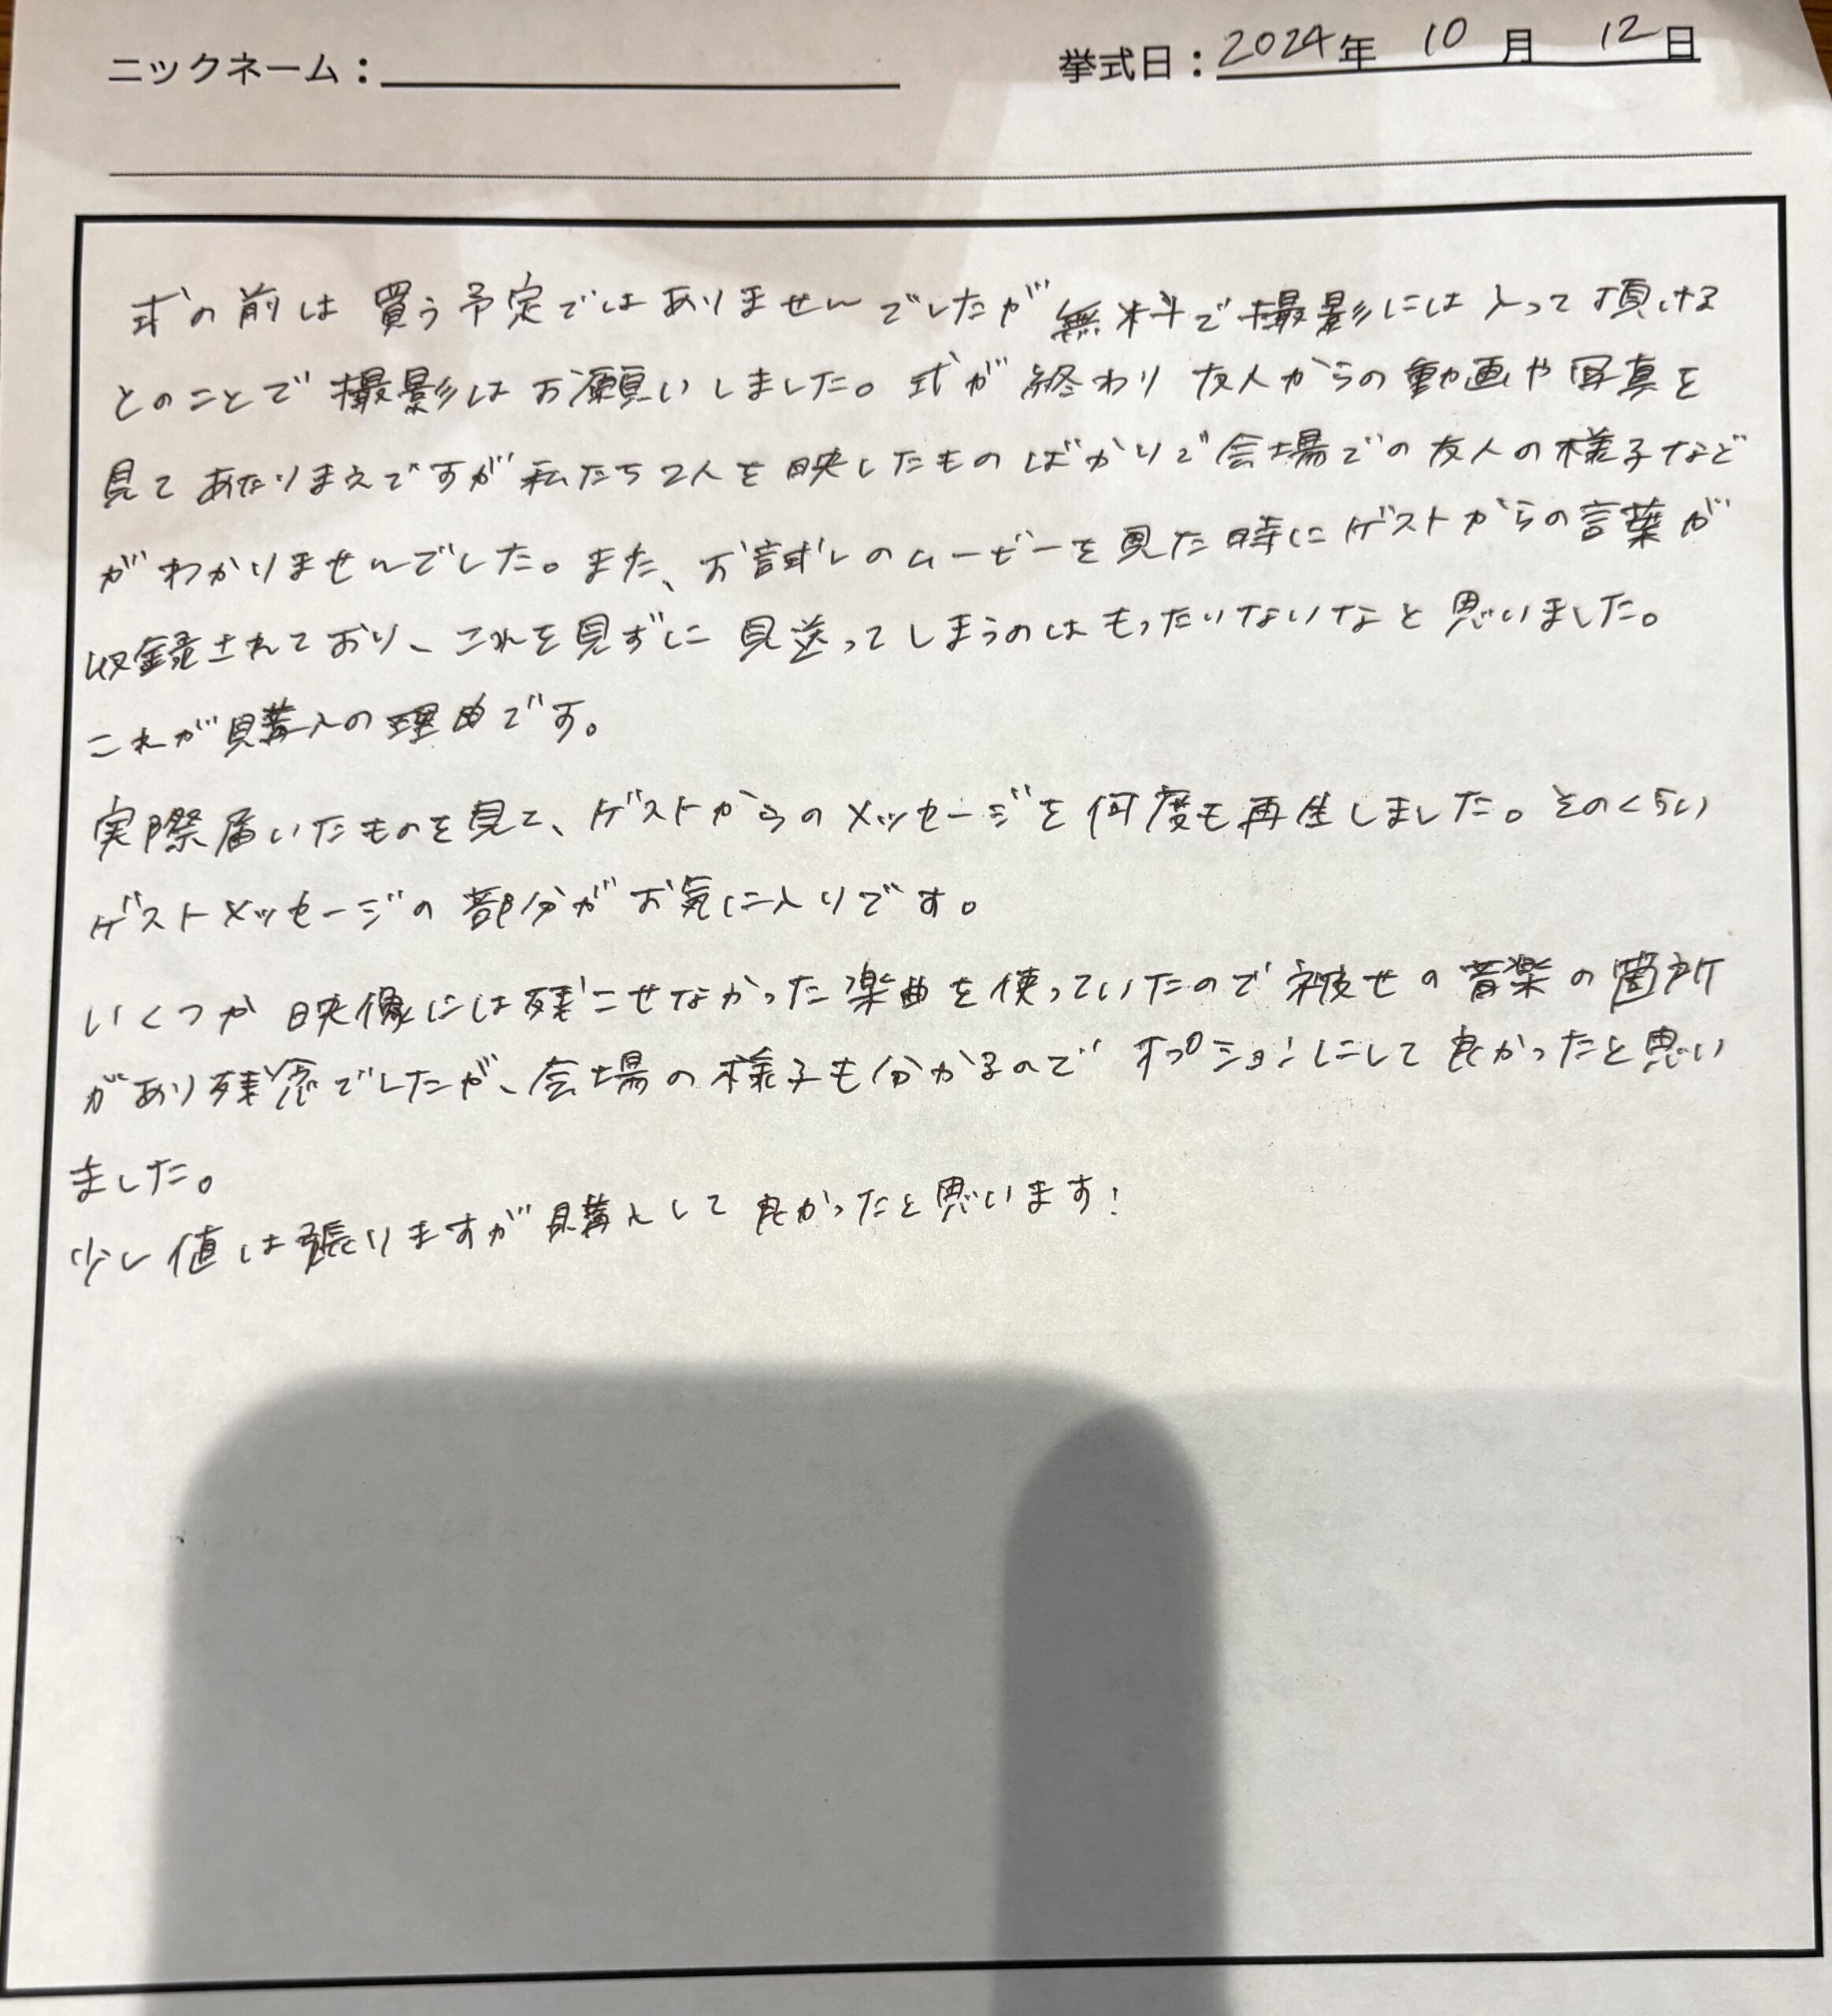 ニックネーム：
挙式日：2024年 10月 12日
式の前は買う予定ではありませんでしたが無料で撮影には入って頂ける
とのことで撮影はお願いしました。式が終わり友人からの動画や写真を
見てあたりまえですが私たち2人を映したものばかりで会場での友人の様子など
がわかりませんでした。また、お試しのムービーを見た時にゲストからの言葉が
収録されており、これを見ずに見送ってしまうのはもったいないなと思いました。
これが購入の理由です。
実際届いたものを見て、ゲストからのメッセージを何度も再生しました。そのくらい
ゲストメッセージの部分がお気に入りです。
いくつか映像には残こせなかった楽曲を使っていたので被せの音楽の箇所
があり残念でしたが、会場の様子も分かるのでオプションにして良かったと思い
ました。
少し値は張りますが購入して良かったと思います!